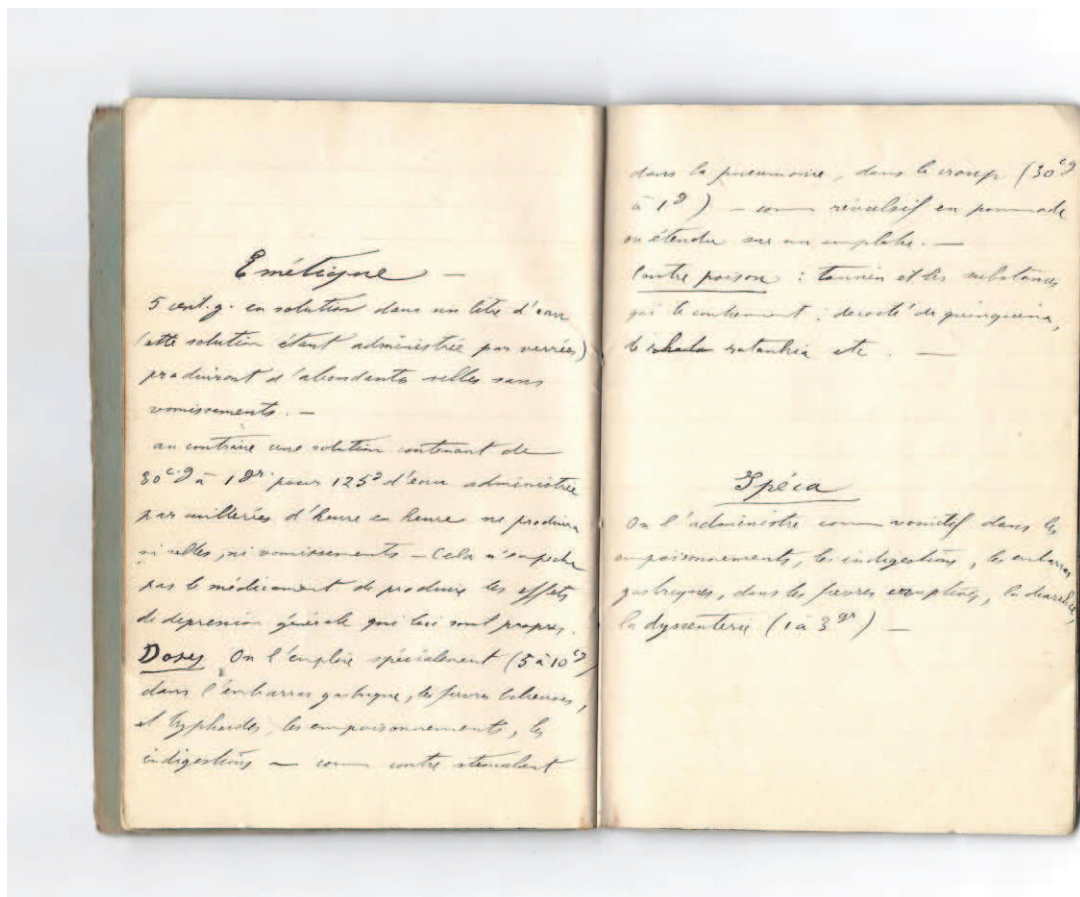 Emétique —
5 cent. g. en solution dans un litre d'eau
(cette solution étant administrée par verrées)
produiront d'abondantes selles sans
vomissements. —
au contraire une solution contenant de
30 c.g à 1 gr. pour 125 g d'eau administrée
par cuillerées d'heure en heure ne produira
ni selles, ni vomissements — Cela n'empêche
pas le médicament de produire les effets
de dépression générale qui lui sont propres.
Doses On l'emploie spécialement (5 à 10 cg)
dans l'embarras gastrique, les fièvres bilieuses,
et typhoïdes, les empoisonnements, les
indigestions — comm contre stimulant
dans la pneumonie, dans le croup (30 c.g
à 1 g) — comm révulsif en pommade
ou étendu sur un emplatre. —
Contre poison : tannin et les substances
qui le contiennent ; decocté de quinquina,
de ratanhia etc. —
Ipéca
On l'administre comm vomitif dans les
empoisonnements, les indigestions, les embarras
gastriques, dans les fievres eruptives, la diarrhée,
la dyssenterie (1 à 3 gr) —